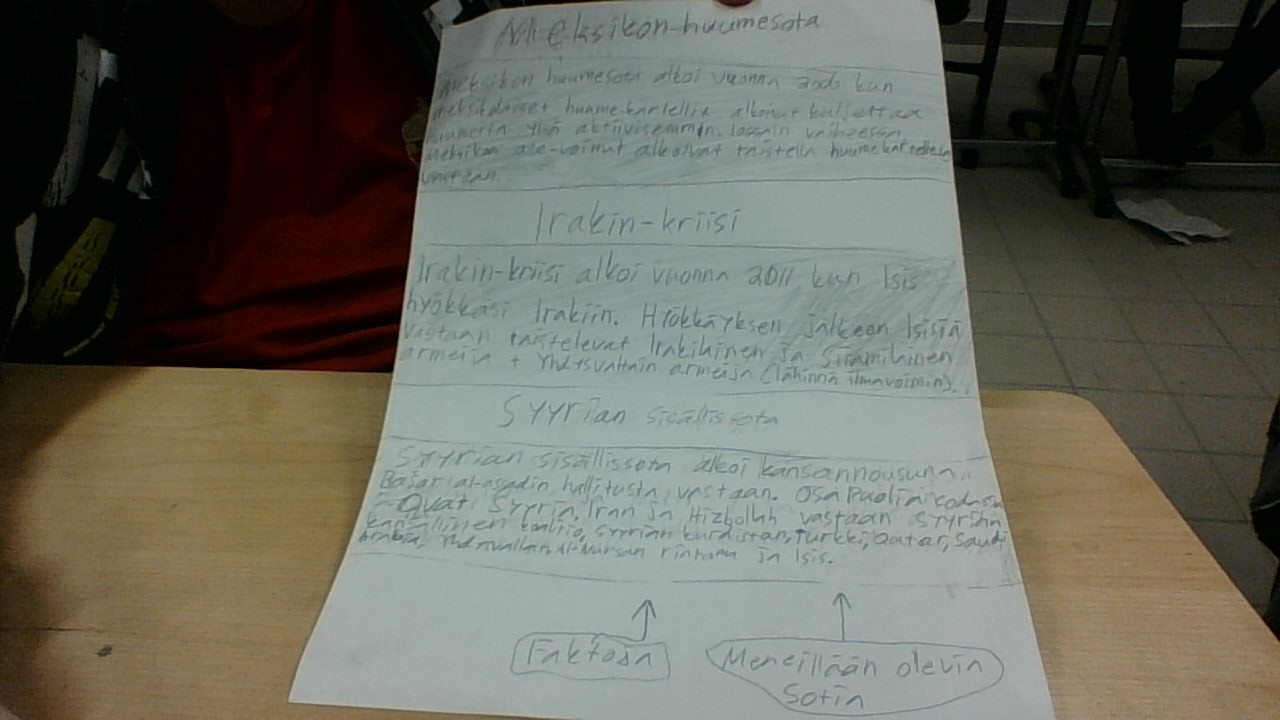 Meksikon-huumesota
Meksikon huumesota alkoi vuonna 2006 kun
meksikolaiset huumekartellit alkoivat kuljettaa
huumeita yhä aktiivisemmin. Jossain vaiheessa
Meksikon ase-voimat alkoivat taistella huumekartelleja
vastaan.
Irakin-kriisi
Irakin-kriisi alkoi vuonna 2011 kun Isis
hyökkäsi Irakiin. Hyökkäyksen jälkeen Isisiä
vastaan taistelevat Irakilainen ja
armeija + Yhdysvaltain armeija (lähinnä ilmavoimin).
Syyrian sisällissota
Syyrian sisällissota alkoi kansannousuna
Bašar al-asadin hallitusta vastaan. Osapuolia sodassa
Ovat Syyria, Iran ja Hizbollah vastaan Syyrian
kansallinen koalitio, Syyrian kurdistan, Turkki, Qatar, Saudi
Arabia, Yhdysvallat, Al-Nursan rintama ja Isis.
Faktoja
Meneillään olevia
Sotia